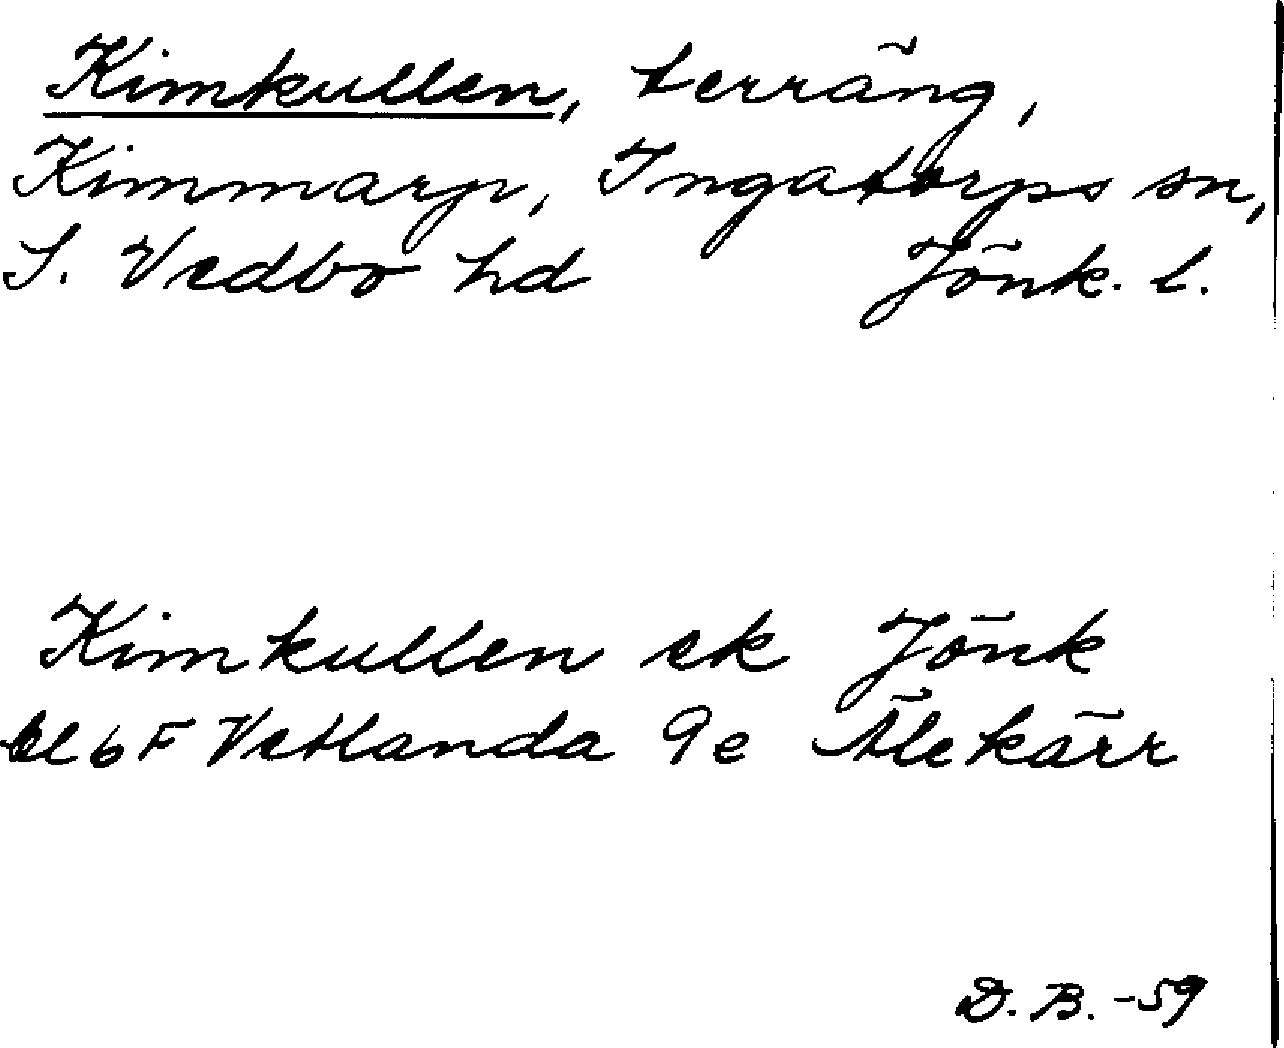 Kimkullen, terräng,
Kimmarp, Ingatorps sn,
S. Vedbo hd Jönk. l.
Kimkullen ek Jönk
bl 6 F Vetlanda 9e Älekärr
D. B. -59